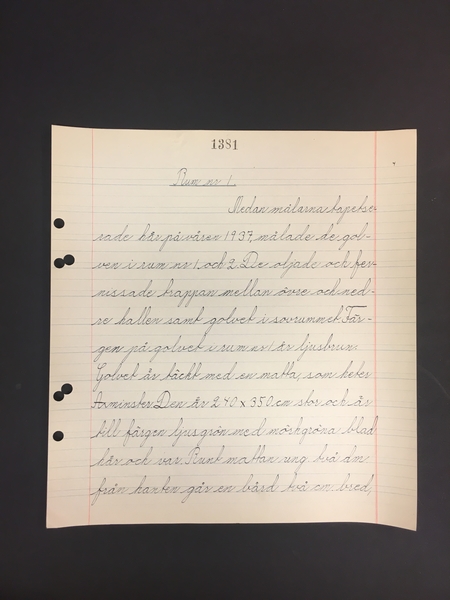 1381
Rum nr 1.
Medan målarna tapetse-
rade här på våren 1937, målade de gol-
ven i rum nr 1, och 2. De oljade och fer-
nissade trappan mellan övre och ned-
re hallen samt golvet i sovrummet. Fär-
gen på golvet i rum nr 1 är ljusbrun.
Golvet är täckt med en matta, som heter
Axminster. Den är 240 x 350 cm stor och är
till färgen ljusgrön med mörkgröna blad
här och var. Runt mattan ung. två dm
från kanten går en bård två cm bred,